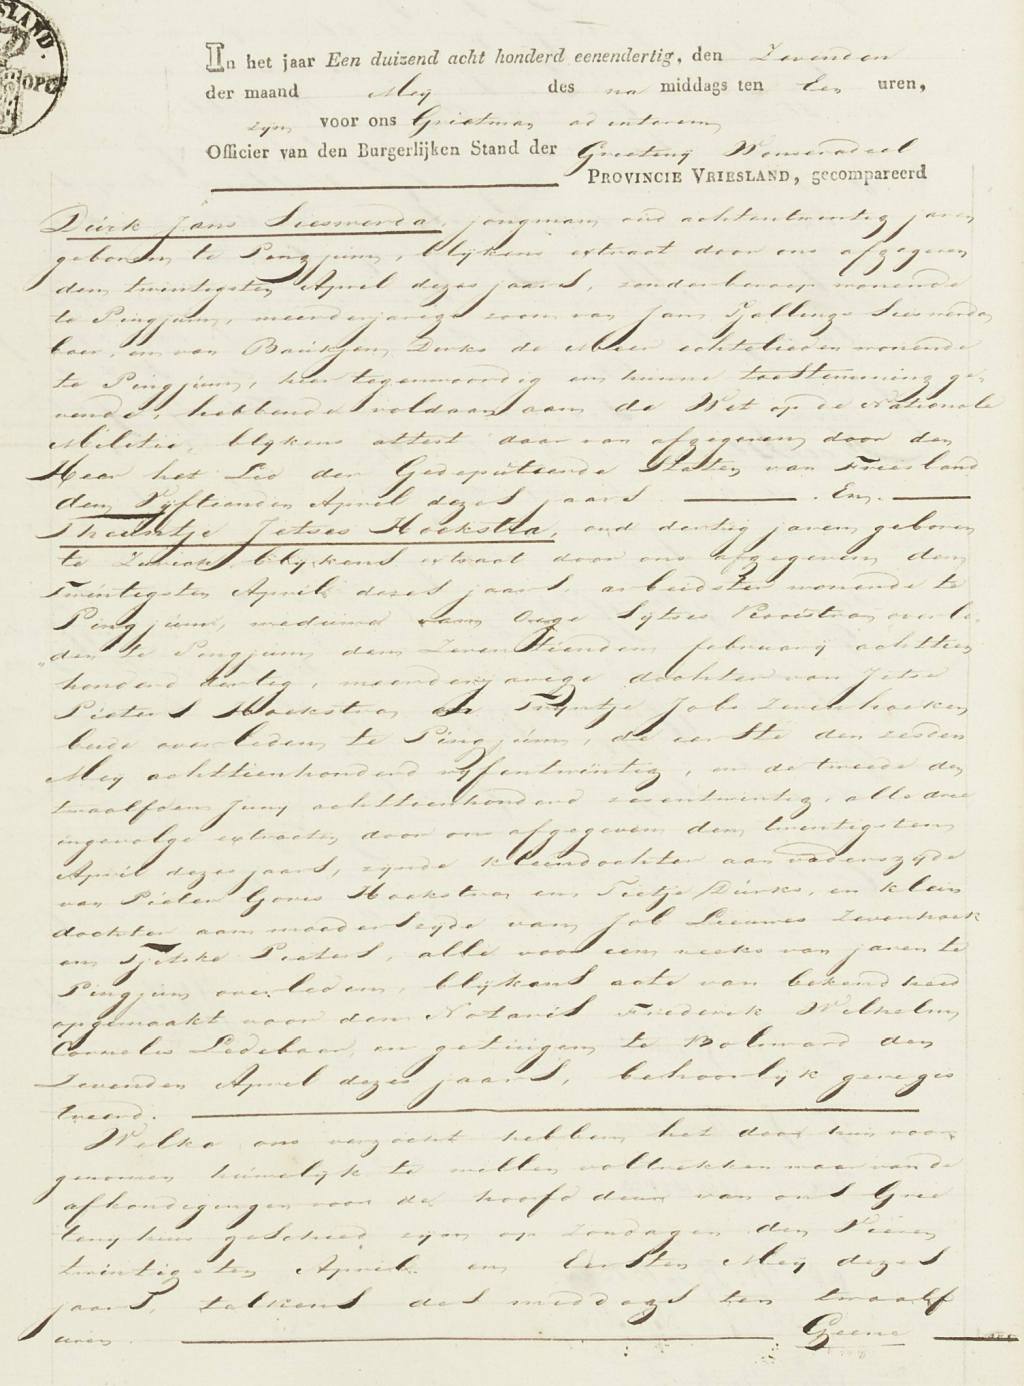 SLAND.
OPC
In het jaar Een duizend acht honderd eenendertig, den Zevenden
der maand Mey des na middags ten Een uren,
zyn voor ons Grietman ad interim
Officier van den Burgerlijken Stand der Grieteny Wonseradeel
PROVINCIE VRIESLAND, gecompareerd
Durk Jans Sieswerda, jongman, oud achtentwintig jaren
geboren te Pingjum, blykens extract door ons afgegeven
den twintigsten April dezes jaars, zonder beroep wonende
te Pingjum, meerderjarige zoon van Jans Tjallings Sieswerda
boer, en van Baukjen Durks de Meer echtelieden wonende
te Pingjum, hier tegenwoordig en hunne toestemming ge-
vende, hebbende voldaan aan de Wet op de Nationale
Militie, blykens attest daar van afgegeven door den
Heer het Lid der Gedeputeerde Staten van Friesland
den Vyftienden April dezes jaars. En.
Theuntje Jetses Hoekstra, oud dertig jaren, geboren
te Zurich, blykens extract door ons afgegeven den
Twintigsten April dezes jaars, arbeidster wonende te
Pingjum, weduwe van Sytses overle-
den te Pingjum den Zeventienden february achttien
honderd dertig, meerderjarige dochter van Jetse
Pieters Hoekstra en Tryntje Jobs Zevenhoeken
beide overleden te Pingjum, de eerste den zesden
Mey achttienhonderd vyfentwintig, en de tweede den
twaalfden Juny achttienhonderd zesentwintig, alle drie
ingevolge extracten door ons afgegeven den twintigsten
April dezes jaars, zynde kleindochter aan vaderszyde
van Pieter Goves Hoekstra en Tietje Durks, en klein
dochter aan moederszyde van Job Lieuwes Zevenhoek
en Tjitske Pieters, alle voor een reeks van jaren te
Pingjum overleden, blykens acte van bekendheid
opgemaakt voor den Notaris Frederik Wilhelm
Cornelis Ledeboer, en getuigen te Bolsward den
Zevenden April dezes jaars, behoorlyk geregis
treerd.
Welke ons verzocht hebben het door hun voor-
genomen huwelyk te willen voltrekken waar van de
afkondigingen voor de hoofd deur van ons Grie
teny huis geschied zyn op zondagen den Vieren
twintigsten April en Eersten Mey dezes
jaars, telkens des middags ten twaalf
uren. Geene